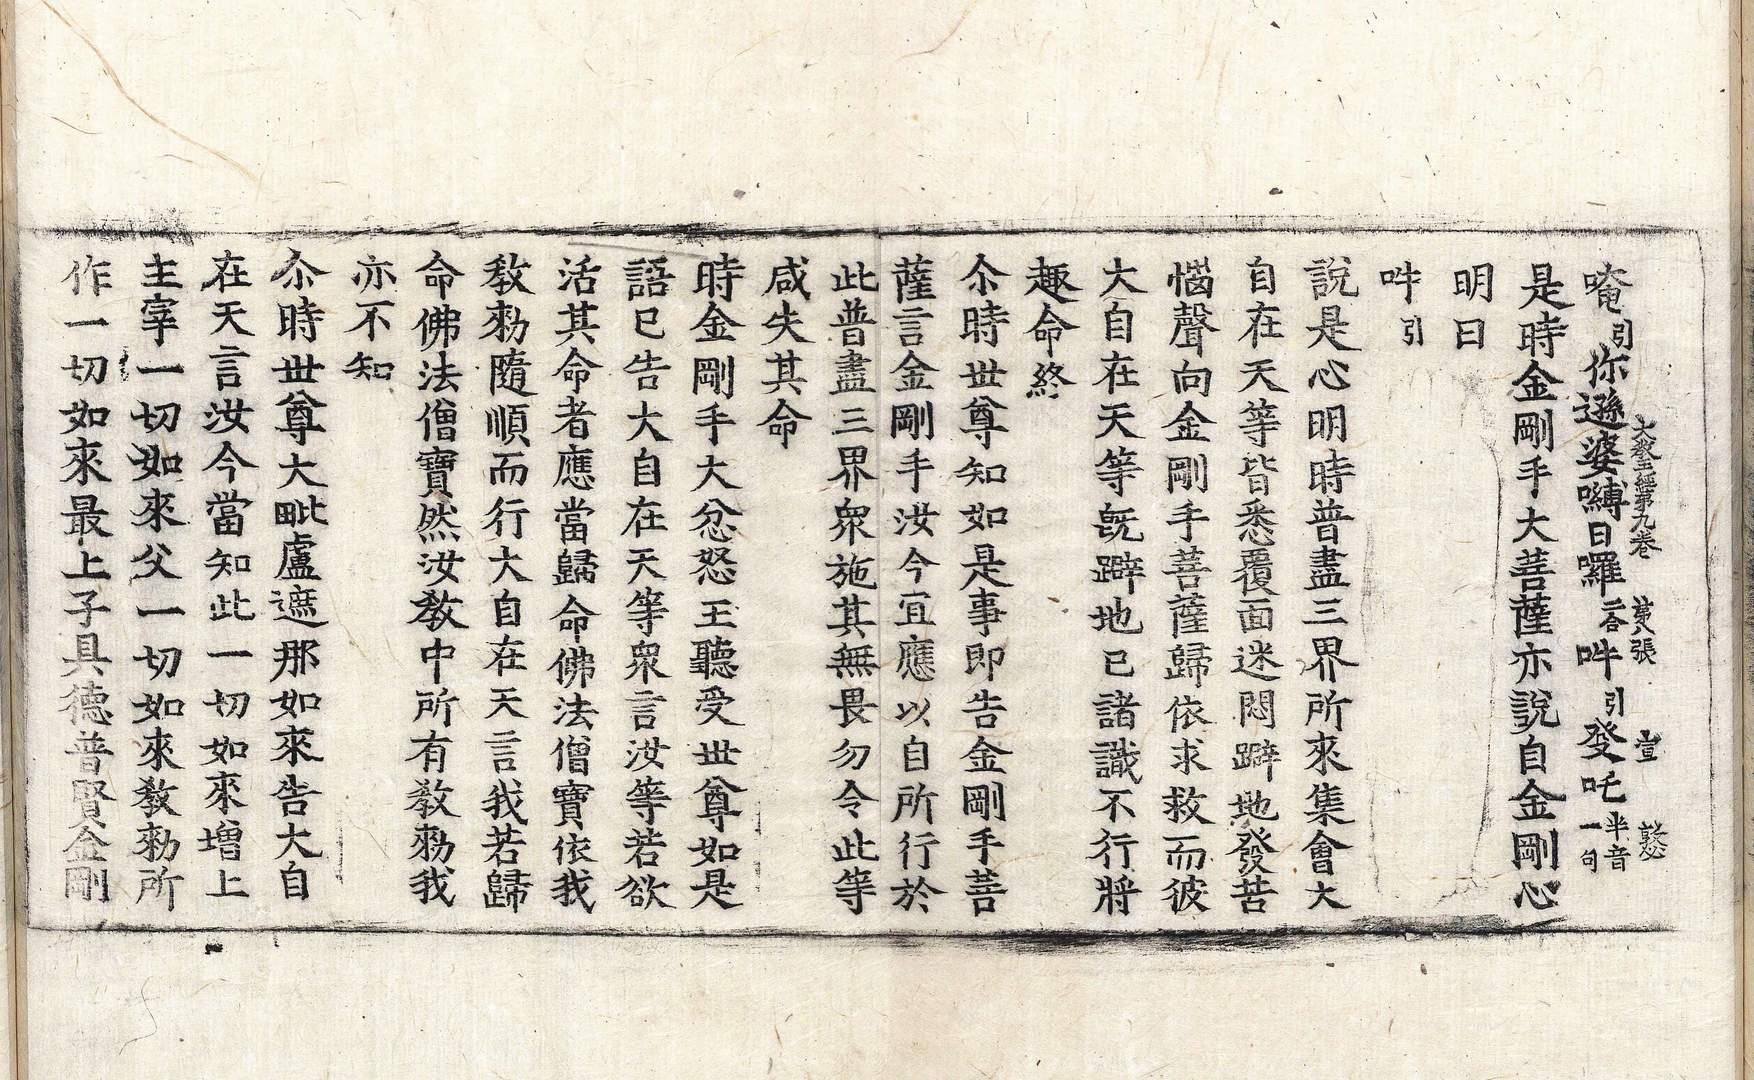 大教王經第九卷 第八張 萱 愍
唵引你遜婆嚩日囉二合吽引發吒半音一句
是時金剛手大菩薩亦說自金剛心
明曰
吽引
說是心明時普盡三界所來集會大
自在天等皆悉覆面迷悶躃地發苦
惱聲向金剛手菩薩歸依求救而彼
大自在天等旣躃地已諸識不行將
趣命終
尒時世尊知如是事即告金剛手菩
薩言金剛手汝今宜應以自所行於
此普盡三界衆施其無畏勿令此等
咸失其命
時金剛手大忿怒王聽受世尊如是
語已告大自在天等衆言汝等若欲
活其命者應當歸命佛法僧寶依我
敎勑隨順而行大自在天言我若歸
命佛法僧寶然汝敎中所有敎勑我
亦不知
尒時世尊大毗盧遮那如來告大自
在天言汝今當知此一切如來增上
主宰一切如來父一切如來敎勑所
作一切如來最上子具德普賢金剛